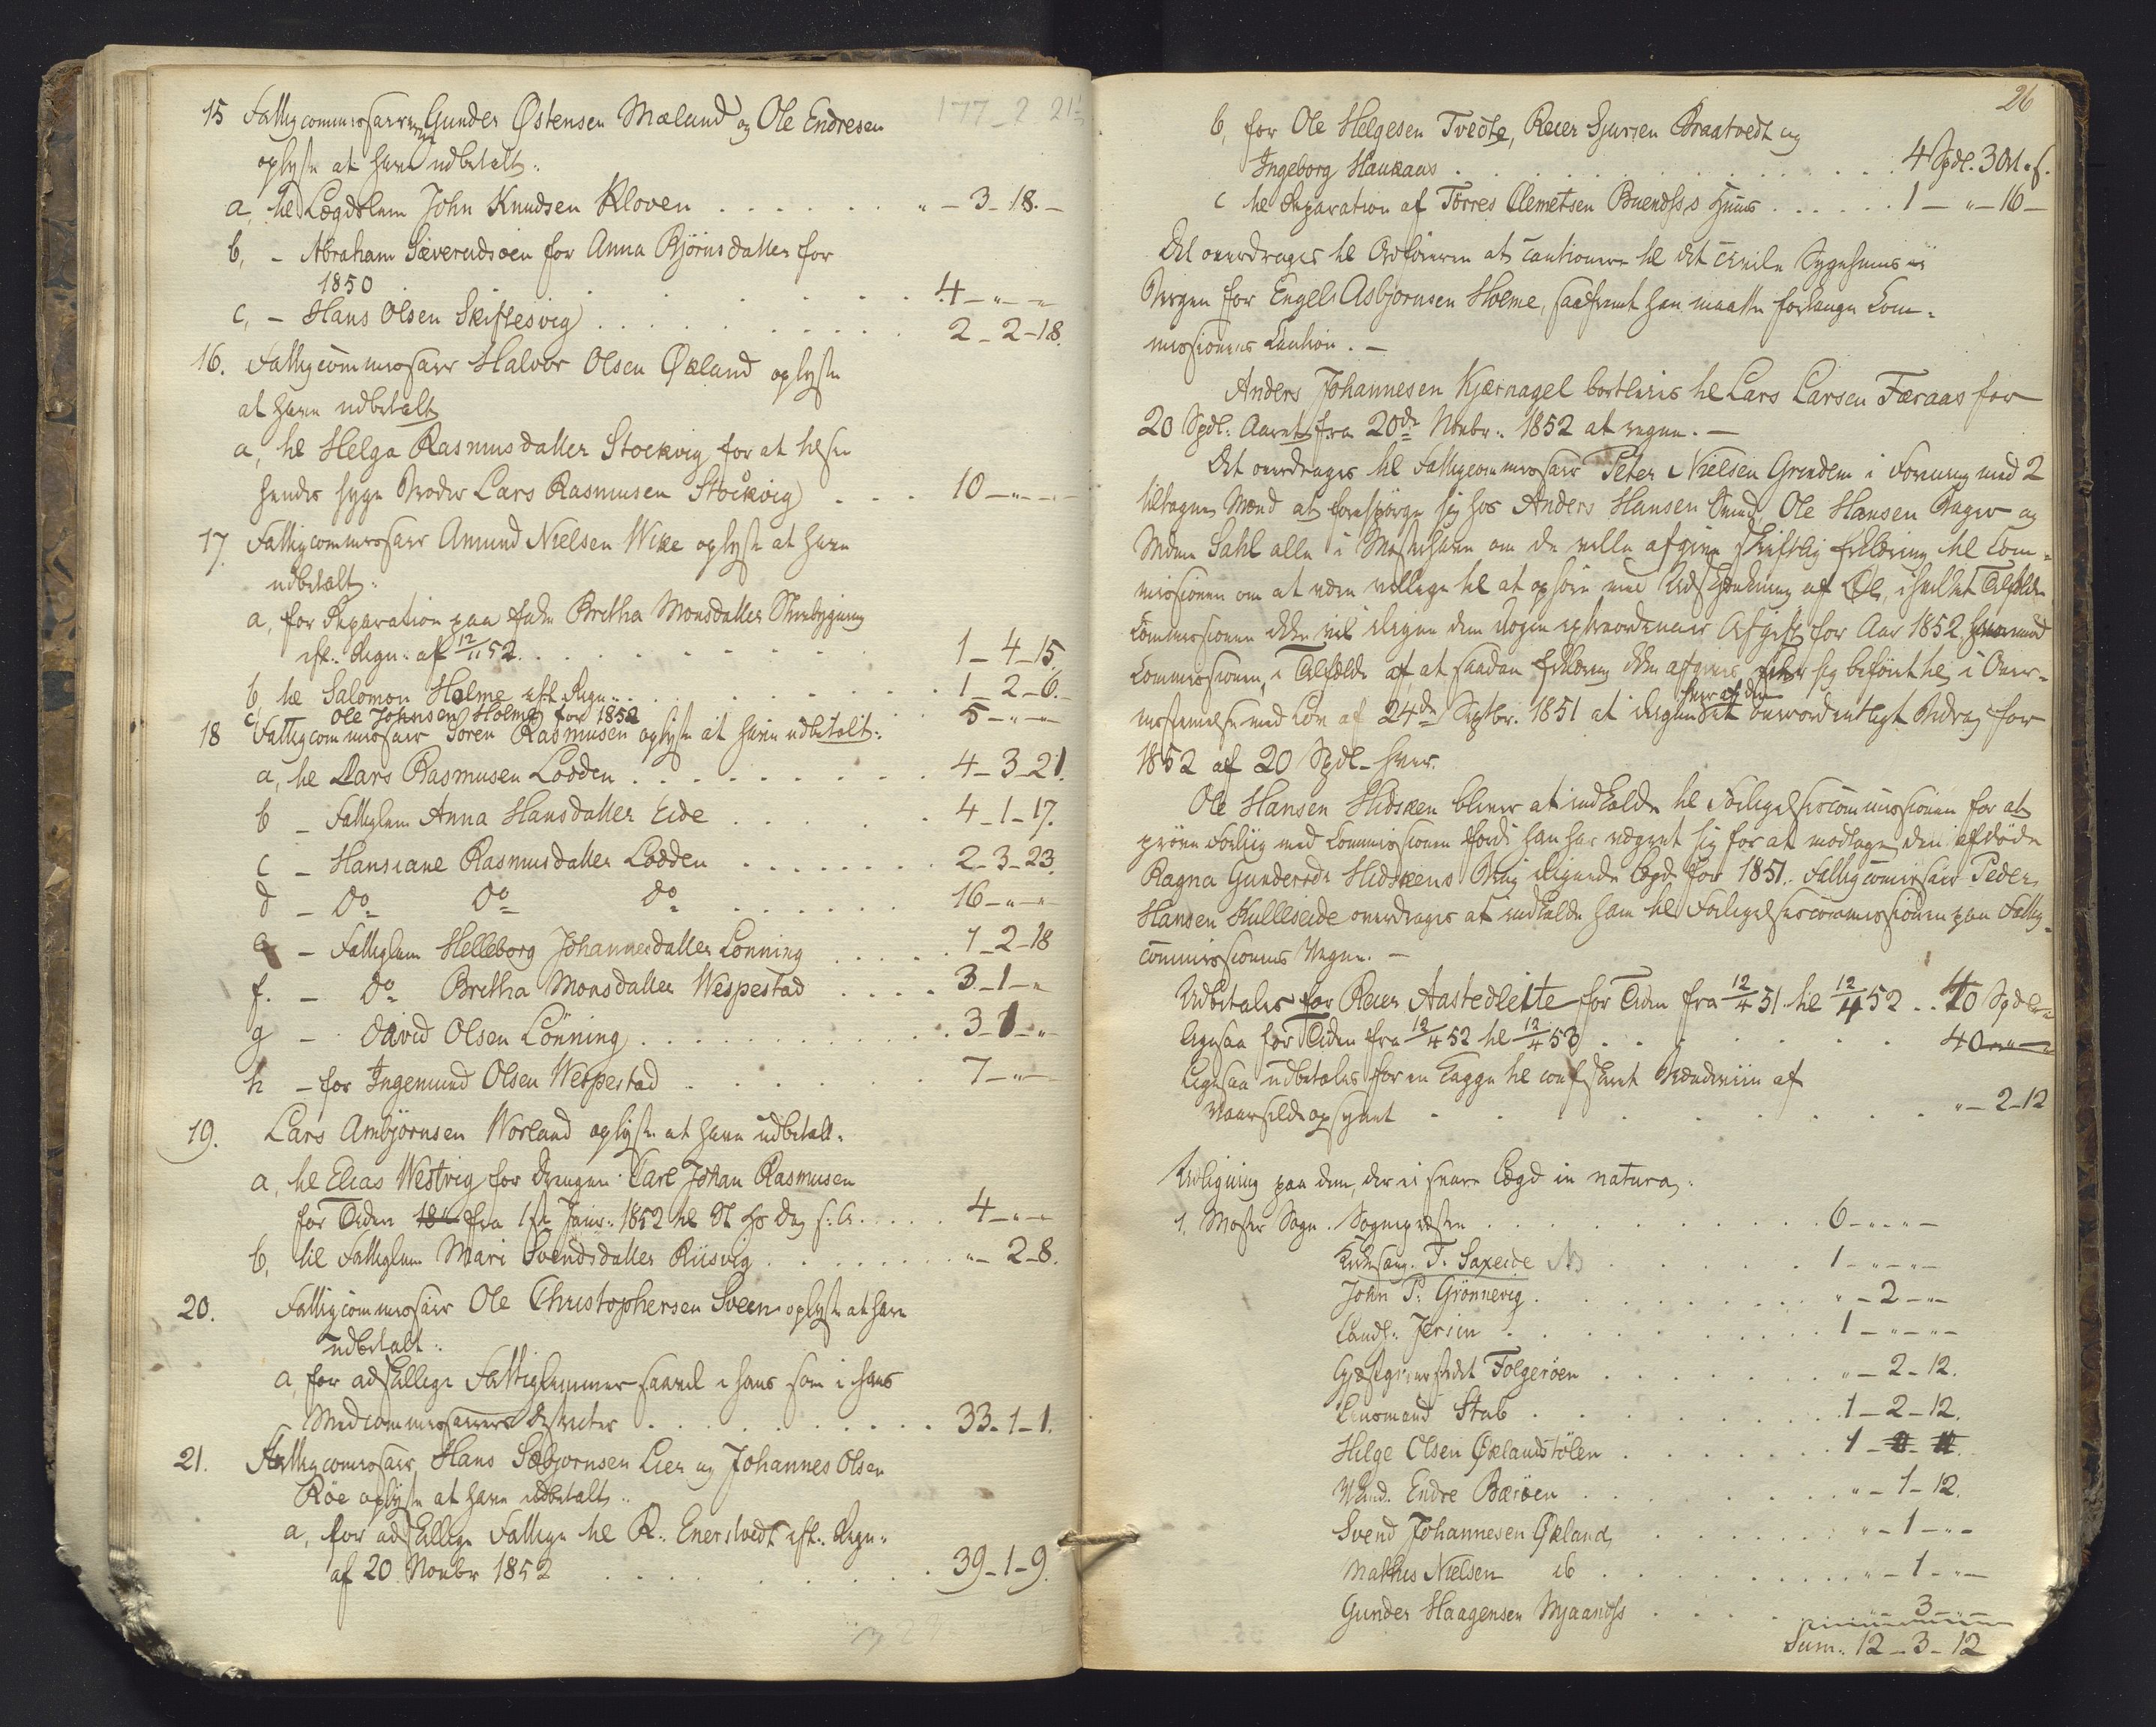 177 - 2 21½
15 Fattigcommissairerne Gunder Østensen Mæland og Ole Endresen
oplyste at have udbetalt:
a, til Lægdslem John Knudsen Kloven . . . . . . . " - 3 - 18. -
b, - Abraham Siverudsøen for Anna Bjørnsdatter for
1850 . . . . . . . 4 - " - "
c, - Hans Olsen Skiftesvig . . . . . . . 2 - 2 - 18.
16. Fattigcommissair Halvor Olsen Økland oplyste
at have udbetalt
a, til Helga Rasmusdatter Stockvig for at tilsee
hendes syge Broder Lars Rasmusen Stockvig . . . 10 - " - "
17. Fattigcommissair Amund Nielsen Wike oplyste at have
udbetalt:
a, for Reparation paa Enke Bretha Monsdatters Huusbygning
eft. Regn: af 12/11 52. . . . . . . 1 - 4 - 15.
b, til Salomon Holme eft Regn: . . . . . . . 1 - 2 - 6. -
c, Ole Johnsen Holme for 1852 5 - " - "
18 Fattigcommissair Søren Rasmusen oplyste at have udbetalt:
a, til Lars Rasmusen Lodden . . . . . . . 4 - 3 - 21.
b - Fattiglem Anna Hansdatter Eide . . . . . . 4 - 1 - 17.
c - Hansiane Rasmusdatter Lodden . . . . . . . 2 - 3 - 23.
d - Do Do Do . . . . . . . 16 - " - "
e - Fattiglem Helleborg Johannesdatter Lønning . . . . . 1 - 2 - 18
f. - Do Bretha Monsdatter Wespestad . . . . 3 - 1 - "
g - David Olsen Lønning . . . . . . . 3 - 1 - "
h - for Ingemund Olsen Wespestad . . . . . . . 7 - " -
19. Lars Ambjørnsen Worland oplyste at have udbetalt:
a, til Elias Westvig for Drengen Carl Johan Rasmusen
for Tiden 18 fra 1ste Janr: 1852 til St Hs Dag s: A. . . . . 4 - " - "
b, til Fattiglem Mari Svendsdatter Riisvig . . . . . . . " - 2 - 8.
20. Fattigcommissair Ole Christophersen Sveen oplyste at have
udbetalt:
a, for adskillige Fattiglemmer saavel i hans som i hans
Medcommissairers Districter . . . . . . . 33 - 1 - 1.
21. Fattigcommissair Hans Sæbjørnsen Lier og Johannes Olsen
Røe oplyste at have udbetalt:
a, for adskillige Fattige til R. Enerstvedt eft. Regn:
af 20 Novbr 1852 . . . . . . . 39 - 1 - 9.
26
b, for Ole Helgesen Tvedte, Reier Sjursen Braatvedt og
Ingeborg Haukaas . . . . . . . 4 Spdl. 3 Ort " s.
c til Reparation af Tørres Clemetsen Buendss Huus . . . . . 1 - " - 16 -
Det overdrages til Ordføreren at cautionere til det civile Sygehuus i
Bergen for Engel Asbjørnsen Holme, saafremt han maatte forlange Com-
missionens Caution. -
Anders Johannesen Kjærnagel bortleies til Lars Larsen Færaas for
20 Spdl. Aaret fra 20de Novbr: 1852 at regne. -
Det overdrages til Fattigcommissair Peter Nielsen Grindem i Forening med 2
tiltagne Mænd at forespørge sig hos Anders Hansen Smed, Ole Hansen Bager og
Mdme Dahl alle i Mosterhavn om de ville afgive skriftlig Erklæring til Com-
missionen om at være villige til at ophøre med Udskjænkning af Øl, i hvilket Tilfælde
Commissionen ikke vil iligne dem nogen extraordinair Afgift for Aar 1852, hvorimod
Commissionen, i Tilfælde af, at saadan Erklæring ikke afgives, seer sig beføiet til, i Over-
ensstemmelse med Lov af 24de Septbr. 1851 at iligne hver af dem et overordentligt Bidrag for
1852 af 20 Spdl. hver.
Ole Hansen Hidsken bliver at indkalde til Forligelsescommissionen for at
prøve Forliig med Commissionen fordi han har vægret sig for at modtage den afdøde
Ragna Gundersdr Hidskens Brug ilignede Lægd for 1851. Fattigcommissair Peder
Hansen Kulleseide overdrages at indkalde ham til Forligelsescommissionen paa Fattig-
commissionens Vegne. -
Udbetales for Reier Aastedleite for Tiden fra 12/4 51 til 12/4 52 . . 40 Spdlr
ligesaa for Tiden fra 12/4 52 til 12/4 53 . . . . . . 40 - " - "
ligesaa udbetales for en Tagge til confiskeret Brændeviin af
Vaarsildsopsynet . . . . . . . " - 2 - 12
Udligning paa dem, der ei svare Lægd in natura:
1. Moster Sogn. Sognepræsten . . . . . . . 6 - " - " -
Kirkesang. T. Saxeide . . . . . . 1 - " - " -
John P. Grønnevig . . . . . . . " - 2 - " -
Landh. Jersin . . . . . . . 1 - " - " -
Gjæstgiverstedet Folgerøen . . . . . . . " - 2 - 12.
Lensmand Stub . . . . . . . 1 - 2 - 12.
Helge Olsen Øklandstølen . . . . . . . 1 - " - "
Vand. Endre Bærøen . . . . . . . " - 1 - 12.
Svend Johannesen Økland . . . . . . . " - 1 - " -
Mathis Nielsen ib . . . . . . . " - 1 - " -
Gunder Haagensen Myaands . . . . " - 3 - " -
Sum: 12 - 3 - 12